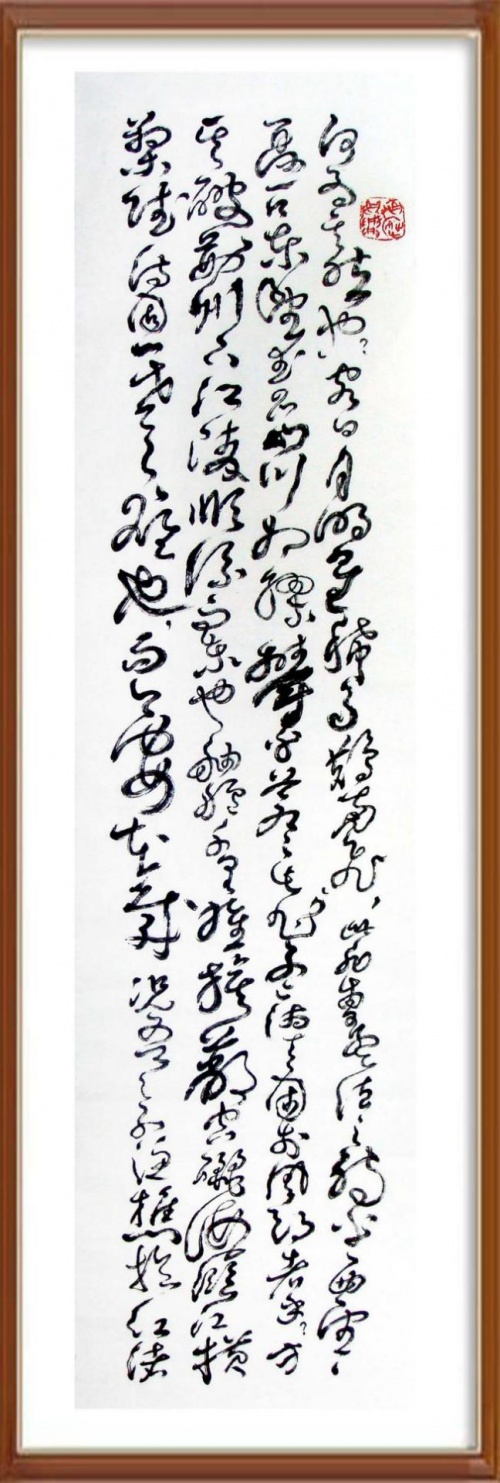 何為其然也客曰月明星稀烏鵲南飛此非曹孟德之詩乎西望
夏口東望武昌山川相繆鬱乎蒼蒼此非孟德之困於周郎者乎方
其破荊州下江陵順流而東也舳艫千里旌旗蔽空釃酒臨江橫
槊賦詩固一世之雄也而今安在哉況吾與子漁樵於江渚